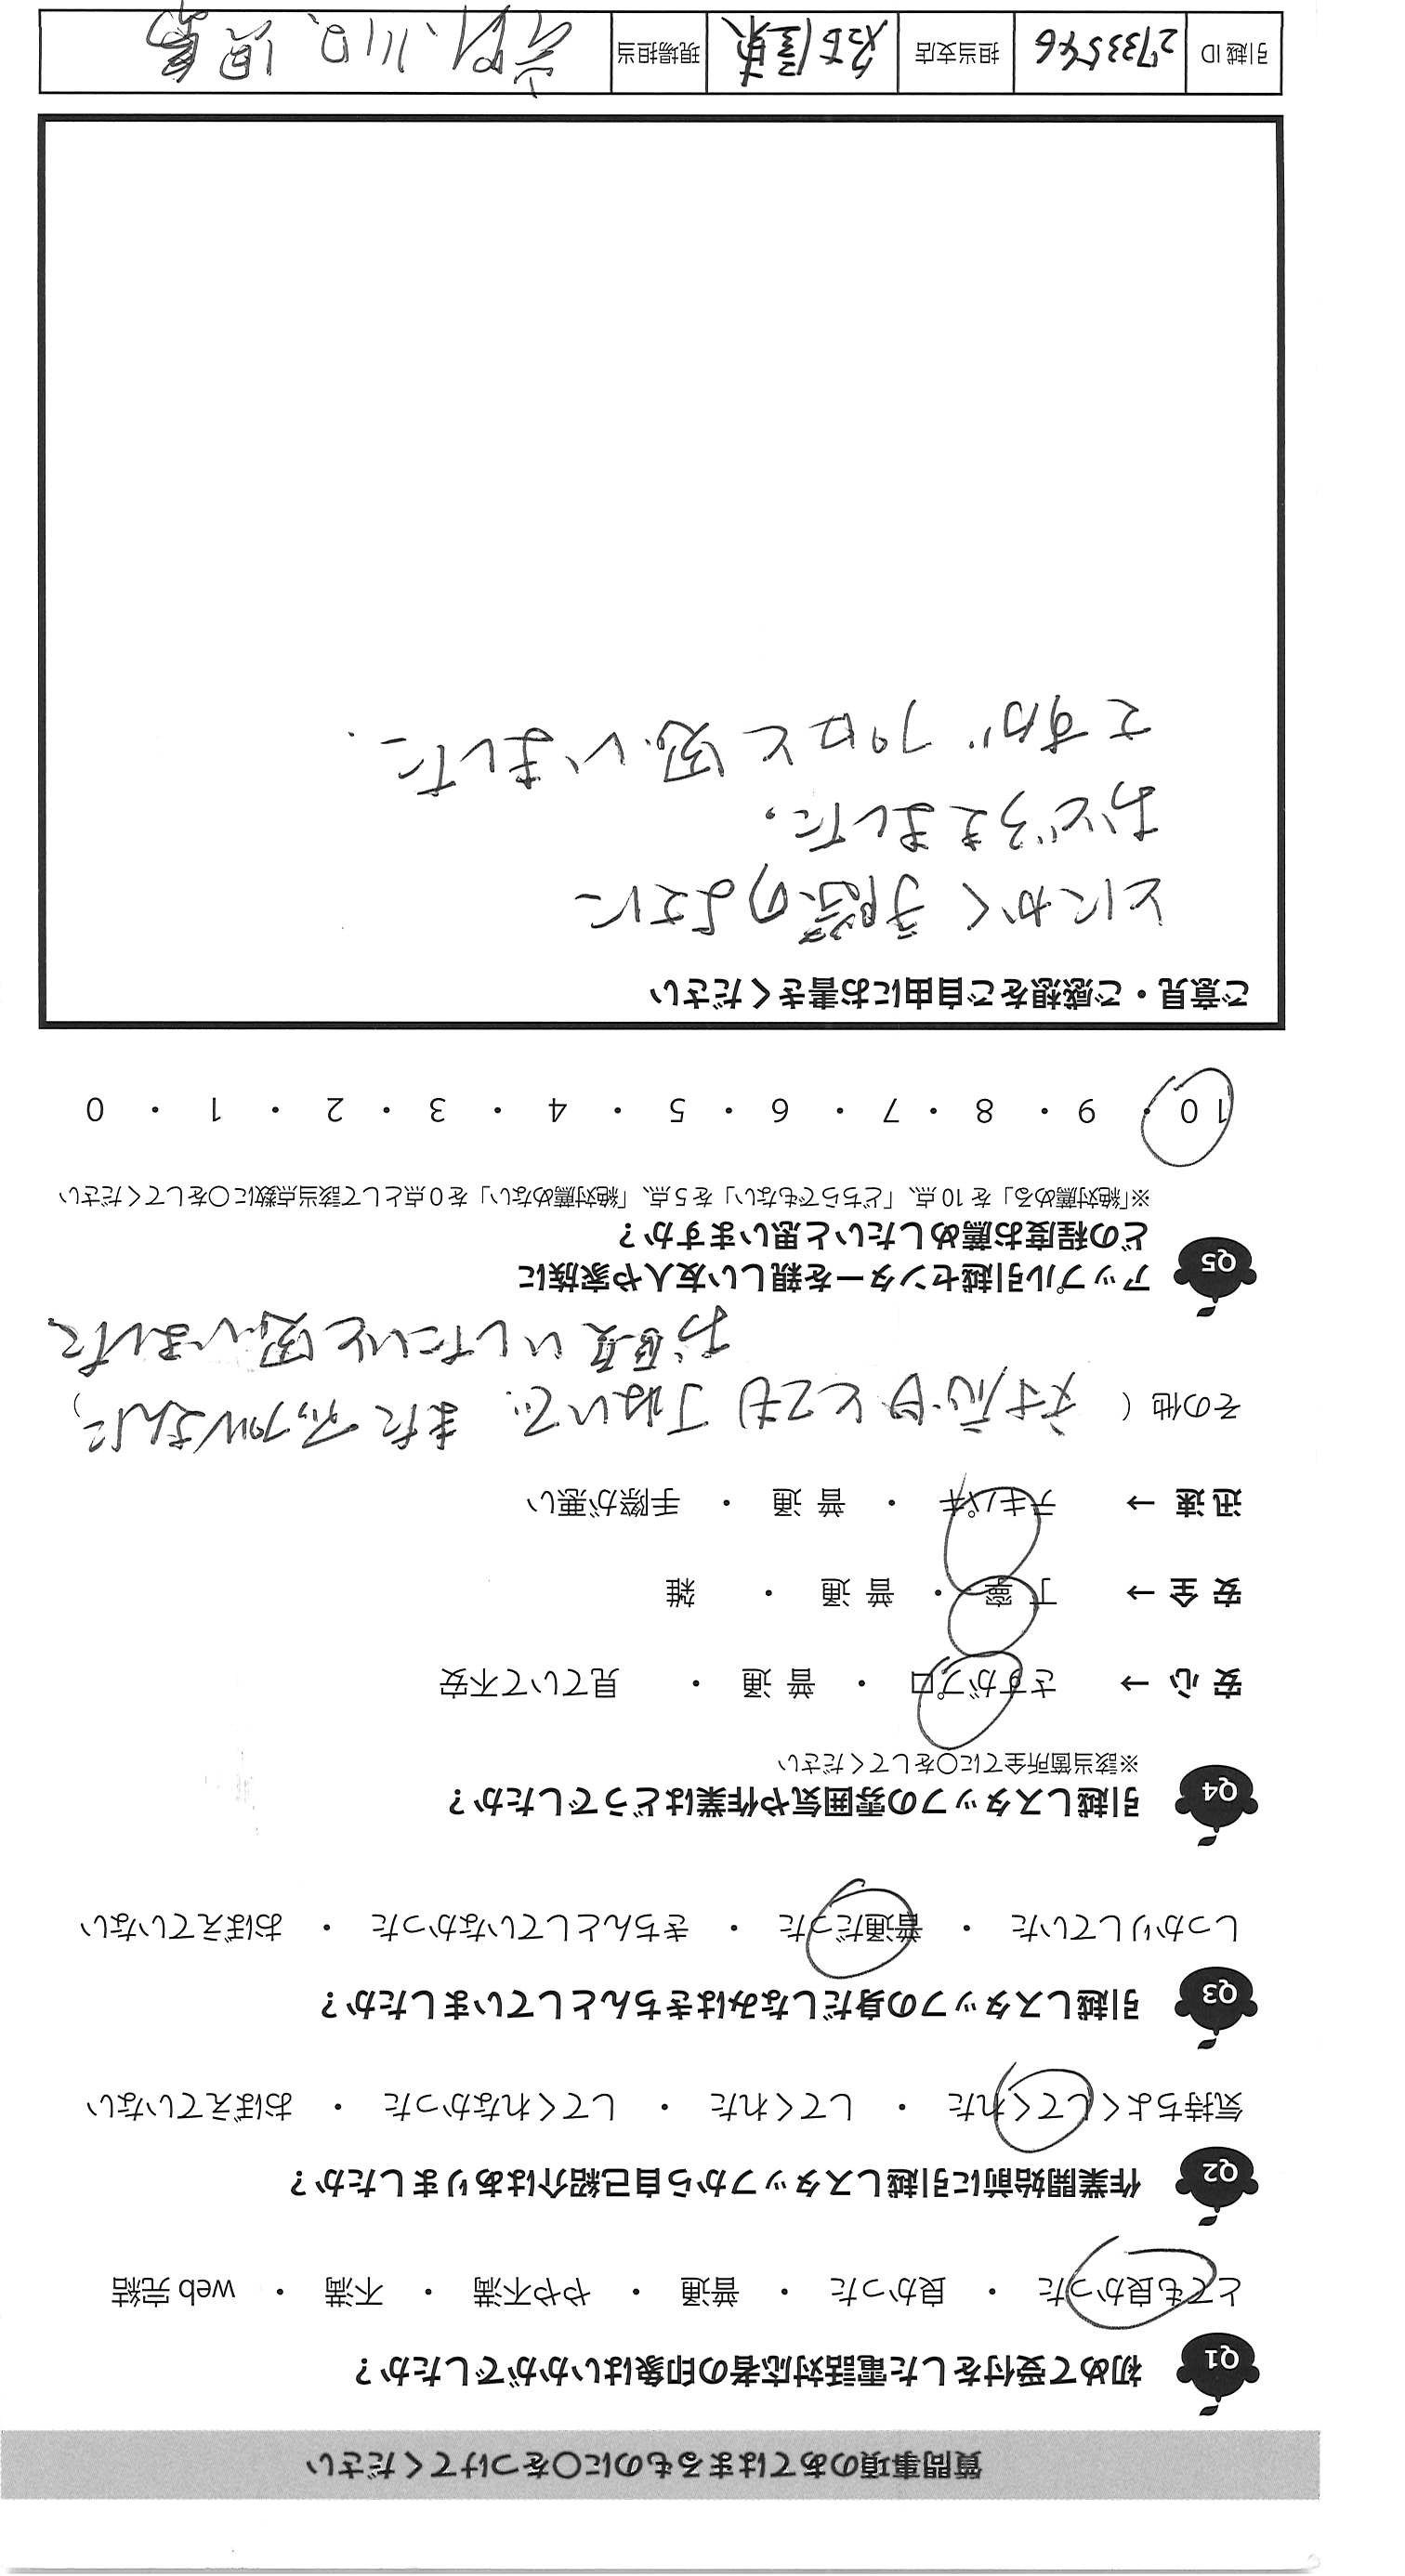 質問事項のあてはまるものに〇をつけてください
Q1 初めて受付をした電話対応者の印象はいかがでしたか？
とても良かった ・ 良かった ・ 普通 ・ やや不満 ・ 不満 ・ web 完結
Q2 作業開始前に引越しスタッフから自己紹介はありましたか？
気持ちよくしてくれた ・ してくれた ・ してくれなかった ・ おぼえていない
Q3 引越しスタッフの身だしなみはきちんとしていましたか？
しっかりしていた ・ 普通だった ・ きちんとしていなかった ・ おぼえていない
Q4 引越しスタッフの雰囲気や作業はどうでしたか？
※該当箇所全てに〇をしてください
安心 → さすがプロ ・ 普通 ・ 見ていて不安
安全 → 丁寧 ・ 普通 ・ 雑
迅速 → テキパキ ・ 普通 ・ 手際が悪い
その他（ 対応もとても丁ねいで、また アップルさんに、
お願いしたいと思いました
Q5 アップル引越センターを親しい友人や家族に
どの程度お薦めしたいと思いますか？
※「絶対薦める」を 10 点、「どちらでもない」を 5 点、「絶対薦めない」を 0 点として該当点数に〇をしてください
10 ・ 9 ・ 8 ・ 7 ・ 6 ・ 5 ・ 4 ・ 3 ・ 2 ・ 1 ・ 0
ご意見・ご感想をご自由にお書きください
とにかく手際のよさに
おどろきました。
さすが プロと思いました。
引越 ID 2733546 担当支店 現場担当 川口